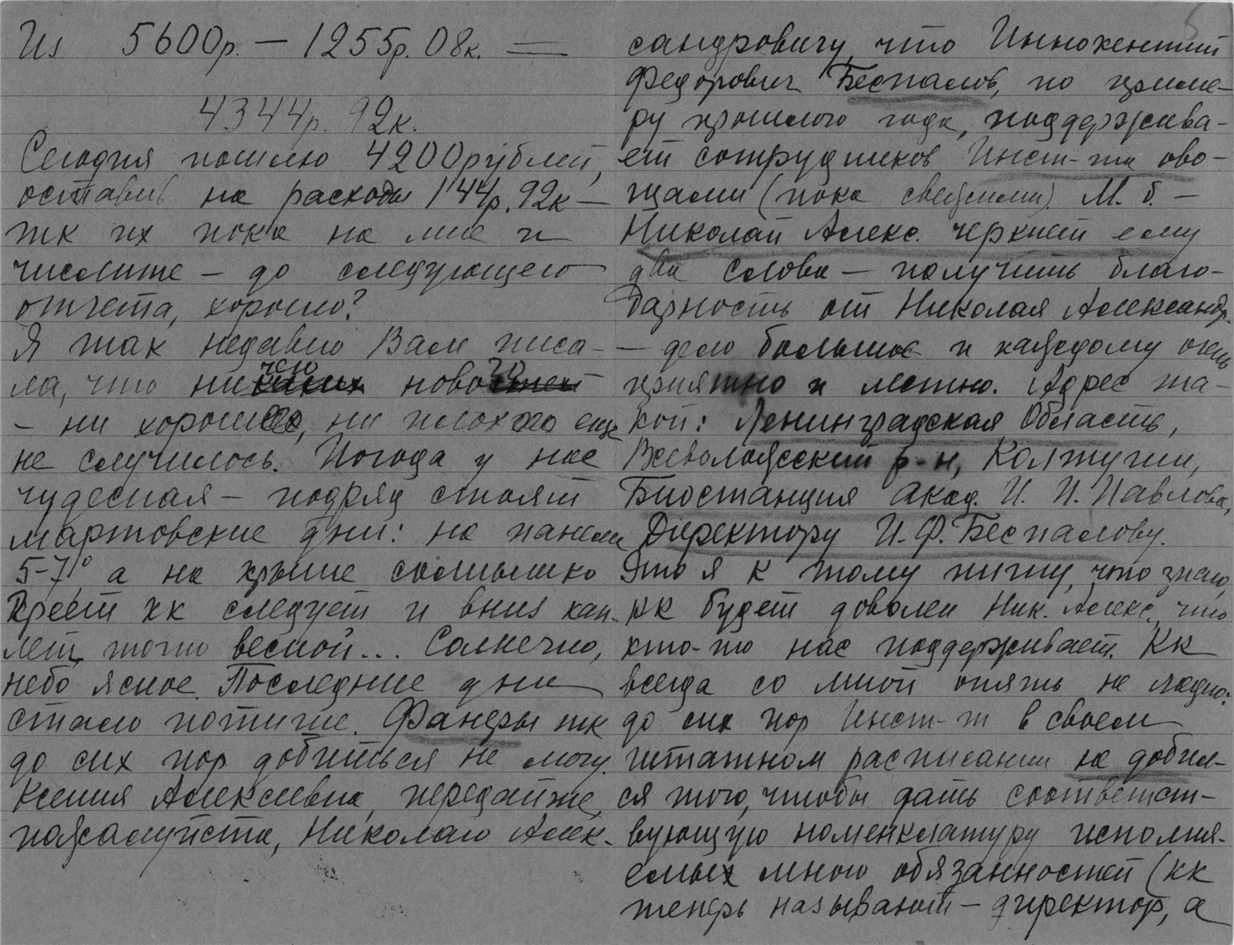 Из 5600р. — 1255р. 08к. =
4344р. 92к.
Сегодня пошлю 4200рублей,
оставив на расходы 144р. 92к —
тк их пока на мне и
числите — до следующего
отчета, хорошо?
Я так недавно Вам писа-
ла, что ничего нового
— ни хорошего, ни плохого еще
не случилось. Погода у нас
чудесная — подряд стоят
мартовские дни: на панели
5-7° а на крыше солнышко
греет кк следует и вниз кап-
лет, точно весной... Солнечно,
небо ясное. Последние дни
стало потише. Фанеры тк
до сих пор добиться не могу.
Ксения Алексеевна, передайте,
пожалуйста, Николаю Алек-
5
сандровичу, что Иннокентий
Федорович Беспалов, по приме-
ру прошлого года, поддержива-
ет сотрудников Инст-та ово-
щами (пока свежими). М. б. —
Николай Алекс. черкнет ему
два слова — получить благо-
дарность от Николая Александр.
— дело большое и каждому очень
приятно и лестно. Адрес та-
кой: Ленинградская Область,
Всеволожский р-н, Колтуши,
Биостанция акад. И. П. Павлова,
Директору И. Ф. Беспалову.
Это я к тому пишу, что знаю,
кк будет доволен Ник. Алекс., что
кто-то нас поддерживает. Кк
всегда со мной опять не ладно:
до сих пор Инст-т в своем
штатном расписании не добил-
ся того, чтобы дать соответст-
вующую номенклатуру исполня-
емых мною обязанностей (кк
теперь называют — директор, а